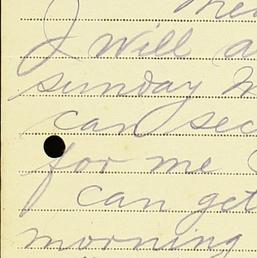 I will a
sunday m
can sec
for me
can get
morning